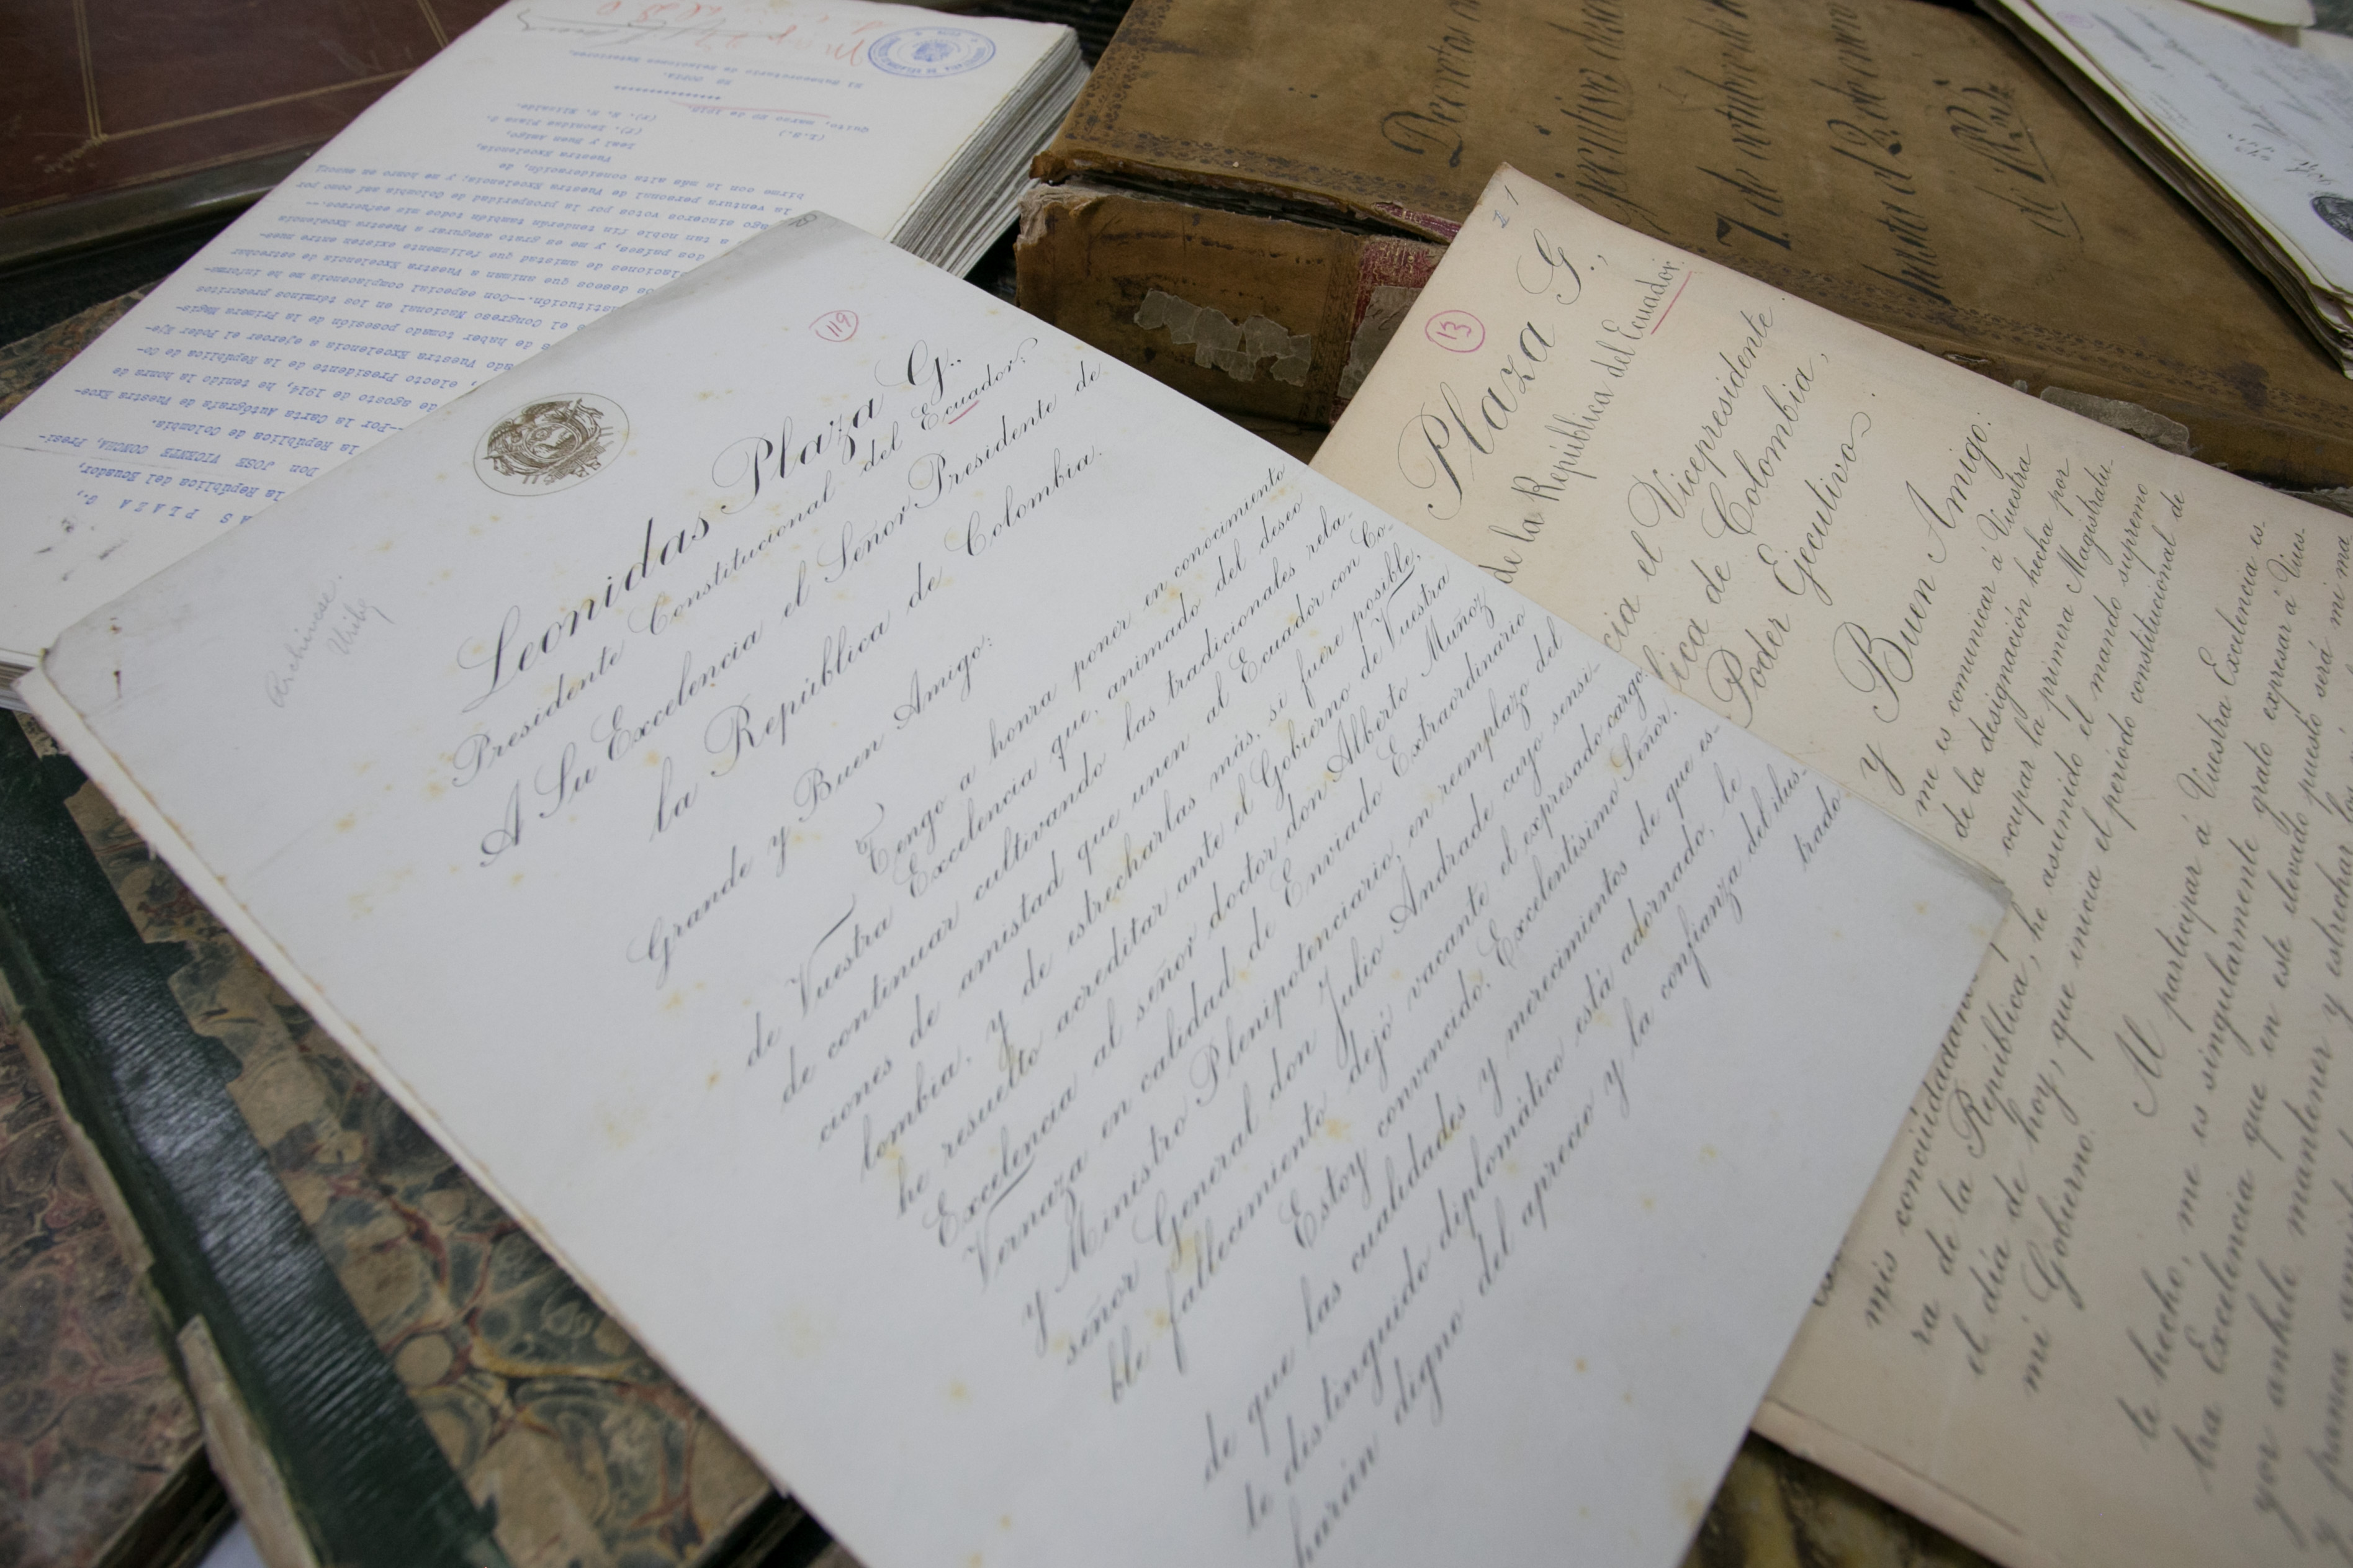 119
Archívese.
Uribe
Leonidas Plaza G.,
Presidente Constitucional del Ecuador,
A Su Excelencia el Señor Presidente de
la República de Colombia.
Grande y Buen Amigo:
Tengo a honra poner en conocimiento
de Vuestra Excelencia que, animado del deseo
de continuar cultivando las tradicionales rela-
ciones de amistad que unen al Ecuador con Co-
lombia, y de estrecharlas más, si fuere posible,
he resuelto acreditar ante el Gobierno de Vuestra
Excelencia al señor doctor don Alberto Muñoz
Vernaza en calidad de Enviado Extraordinario
y Ministro Plenipotenciario, en reemplazo del
señor General don Julio Andrade cuyo sensi-
ble fallecimiento dejó vacante el expresado cargo.
Estoy convencido, Excelentísimo Señor,
de que las cualidades y merecimientos de que es-
te distinguido diplomático está adornado, le
harán digno del aprecio y la confianza del ilus-
trado
I 1
13
Plaza G.,
de la República del Ecuador.
cia el Vicepresidente
lica de Colombia,
Poder Ejecutivo.
y Buen Amigo:
me es comunicar á Vuestra
de la designación hecha por
mis conciudadanos
ocupar la primera Magistratu-
ra de la República, he asumido el mando supremo
el día de hoy, que inicia el período constitucional de
mi Gobierno.
Al participar á Vuestra Excelencia es-
te hecho, me es singularmente grato expresar á Vues-
tra Excelencia que en este elevado puesto será mi ma
yor anhelo mantener y estrechar los
AS PLAZA G.,
la República del Ecuador,
Don JOSE VICENTE CONCHA, Presi-
la República de Colombia.
--Por la Carta Autógrafa de Vuestra Exce-
de agosto de 1914, he tenido la honra de
, electo Presidente de la República de Co-
ado Vuestra Excelencia a ejercer el Poder Eje-
de haber tomado posesión de la Primera Magis-
e el Congreso Nacional en los términos prescritos
nstitución.--Con especial complacencia me he informa-
os deseos que animan a Vuestra Excelencia de estrechar
laciones de amistad que felizmente existen entre nues-
dos países, y me es grato asegurar a Vuestra Excelencia
a tan noble fin tenderán también todos mis esfuerzos.--
ago sinceros votos por la prosperidad de Colombia así como por
la ventura personal de Vuestra Excelencia; y me honro en suscri
birme con la más alta consideración, de
Vuestra Excelencia,
Leal y Buen Amigo,
(f). Leonidas Plaza G.
(f). R. H. Elizalde.
(L.S.)
Quito, marzo 20 de 1915.
Es copia.
El Subsecretario de Relaciones Exteriores,
Decretos
Ejecutivos desde
7 de octubre de
hasta el 12 de enero
de 1885